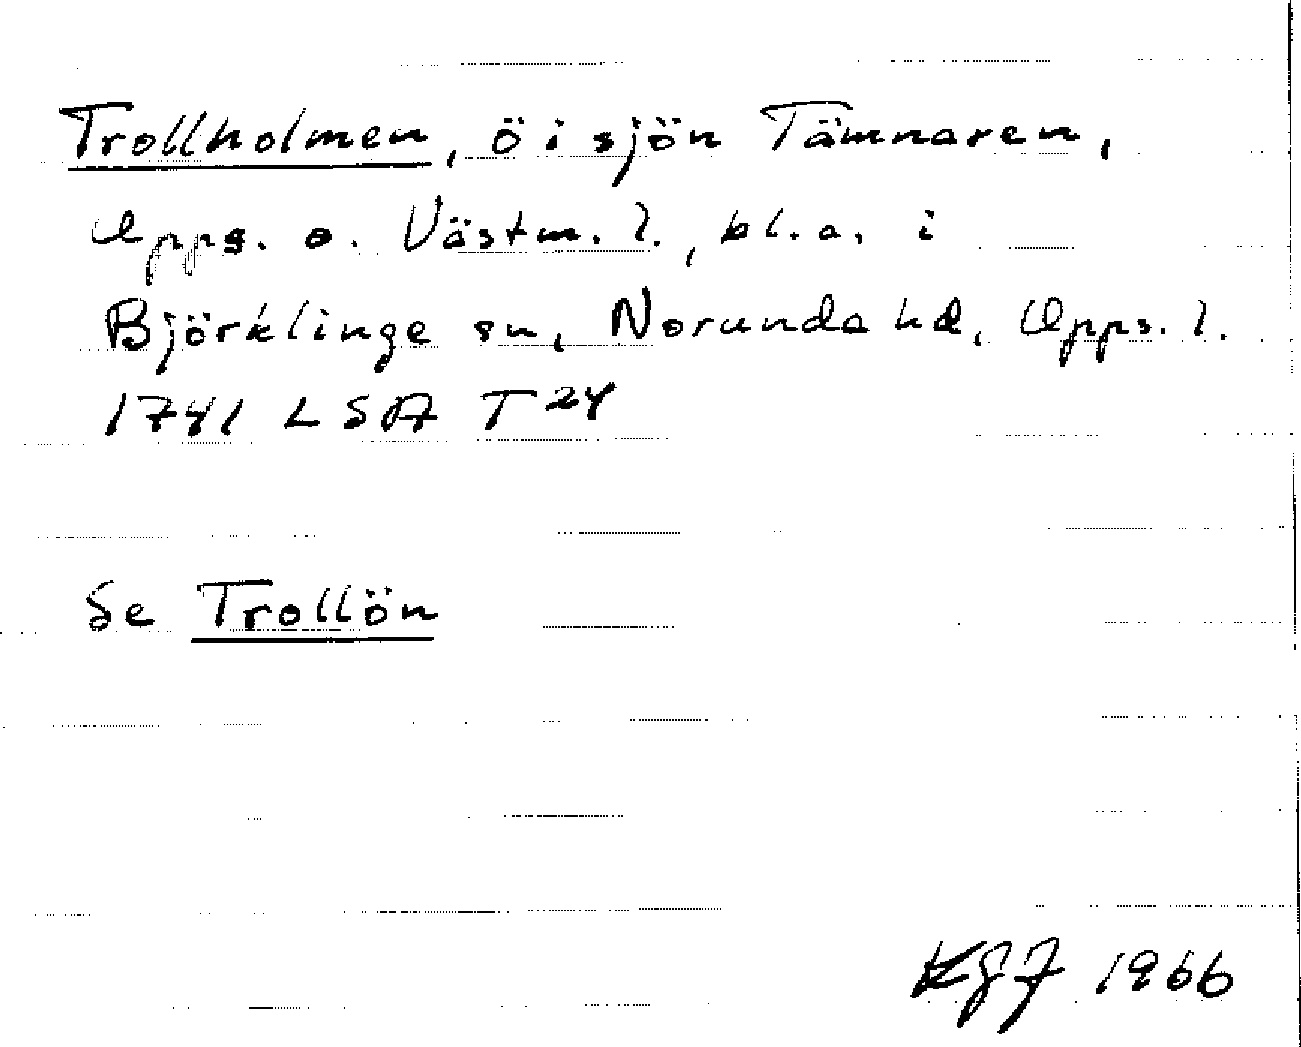 Trollholmen, ö i sjön Tämnaren,
Upps. o. Västm. l., bl.a. i
Björklinge sn, Norunda hd, Upps. l.
1741 LSA T 24
Se Trollön
KGF 1966